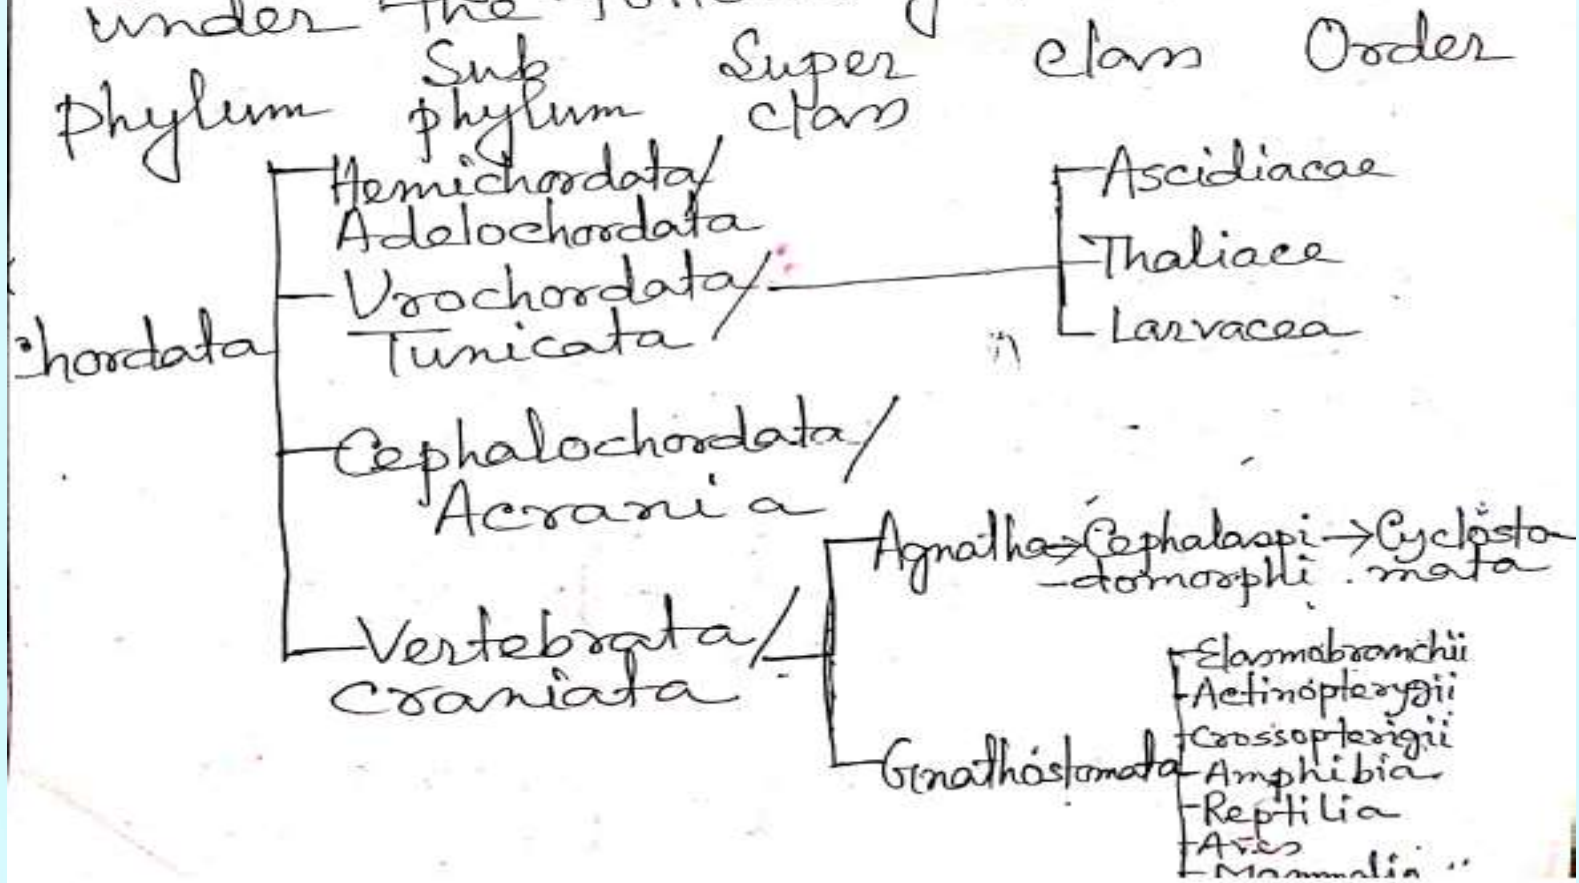 under the
Sub Super class Order
phylum phylum class
Hemichordata/
Adelochordata
Urochordata/
Tunicata
Ascidiacae
Thaliace
Larvacea
chordata
Cephalochordata/
Acrania
Vertebrata/
craniata
Agnatha→Cephalaspi→Cyclosto
-domorphi . mata
Gnathostomata
Elasmobranchii
Actinopterygii
Crossopterigii
Amphibia
Reptilia
Aves
Mammalia